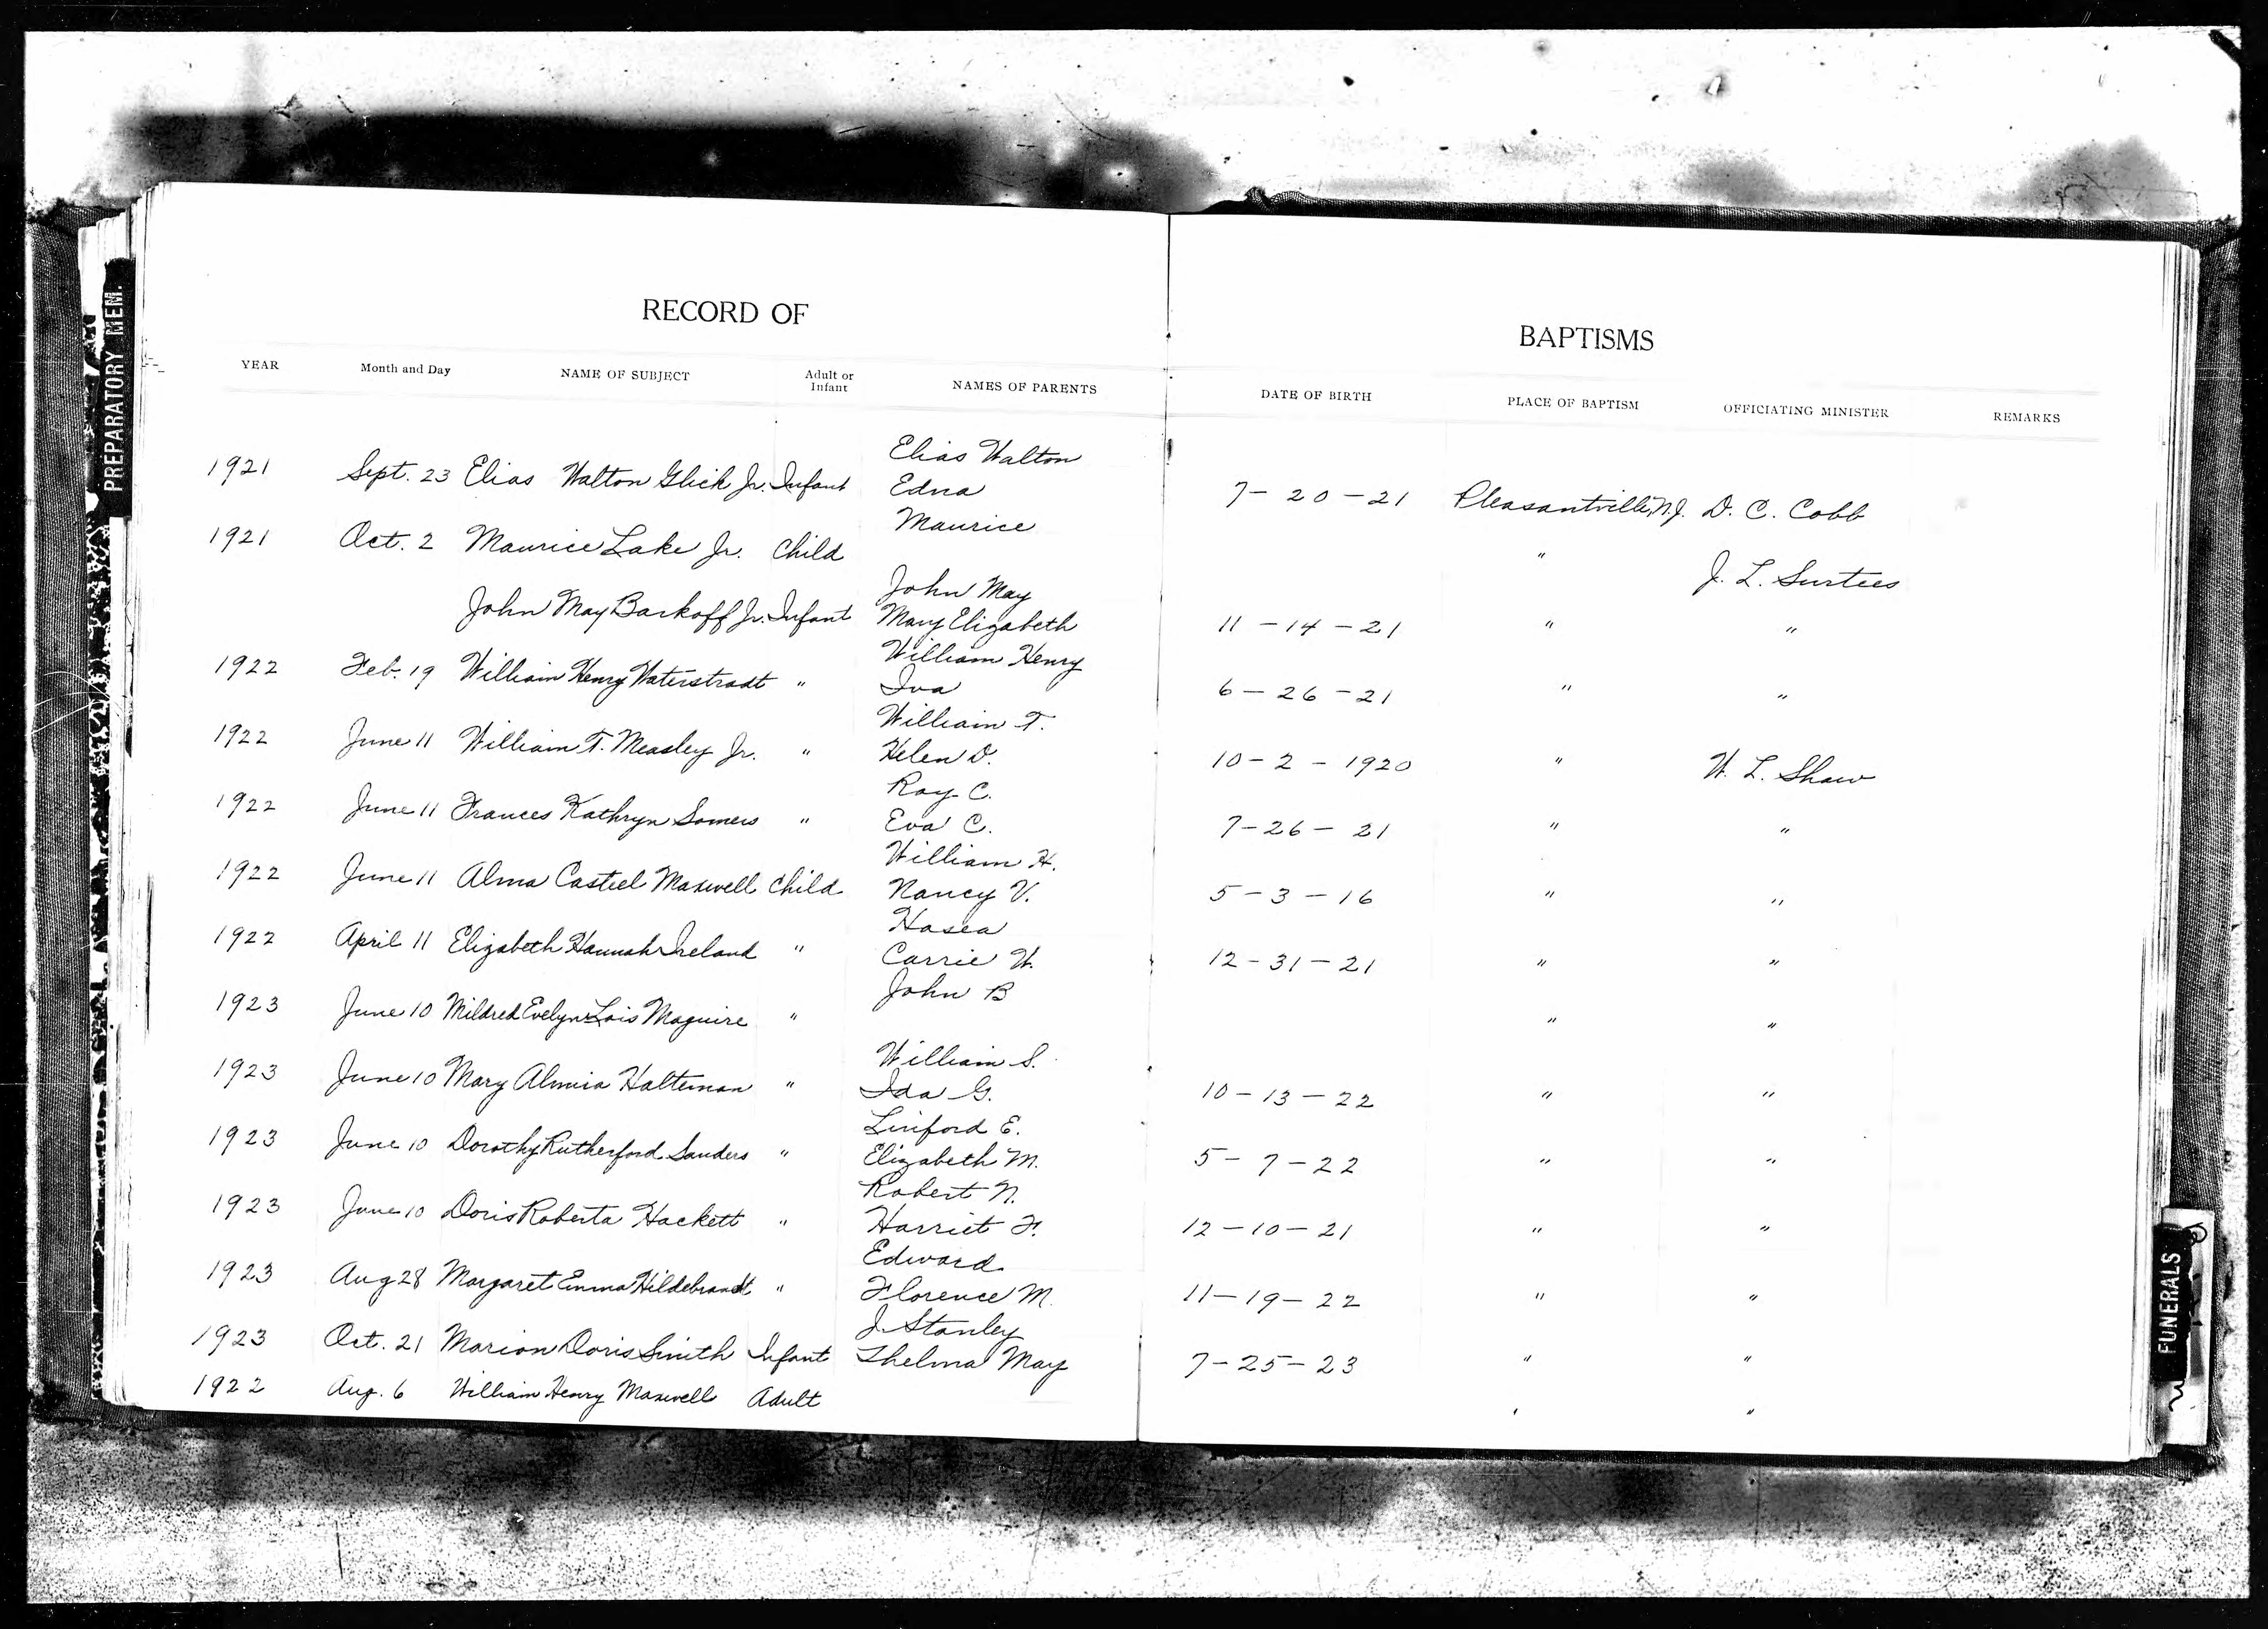 PREPARATORY MEM.
RECORD OF
BAPTISMS
YEAR Month and Day NAME OF SUBJECT Adult or Infant NAMES OF PARENTS DATE OF BIRTH PLACE OF BAPTISM OFFICIATING MINISTER REMARKS
Elias Walton
1921 Sept. 23 Elias Walton Glick Jr. Infant Edna 7-20-21 Pleasantville, N.J. D. C. Cobb
Maurice
1921 Oct. 2 Maurice Lake Jr. Child " J. L. Surtees
John May
John May Barkoff Jr. Infant Mary Elizabeth 11-14-21 " "
William Henry
1922 Feb. 19 William Henry Waterstradt " Iva 6-26-21 " "
William T.
1922 June 11 William T. Measley Jr. " Helen D. 10-2-1920 " W. L. Shaw
Ray C.
1922 June 11 Frances Kathryn Somers " Eva C. 7-26-21 " "
William H.
1922 June 11 Alma Casteel Maxwell Child Nancy V. 5-3-16 " "
Hosea
1922 April 11 Elizabeth Hannah Ireland " Carrie W. 12-31-21 " "
John B
1923 June 10 Mildred Evelyn Lois Maguire " " "
William S.
1923 June 10 Mary Halteman " Ida G. 10-13-22 " "
Linford E.
1923 June 10 Dorothy Rutherford Sanders " Elizabeth M. 5-7-22 " "
Robert N.
1923 June 10 Doris Roberta Hackett " Harriet F. 12-10-21 " "
Edward
1923 Aug 28 Margaret Emma Hildebrandt " Florence M. 11-19-22 " "
J. Stanley
1923 Oct. 21 Marion Doris Smith Infant Thelma May 7-25-23 " "
1922 Aug. 6 William Henry Maxwell Adult " "
FUNERALS